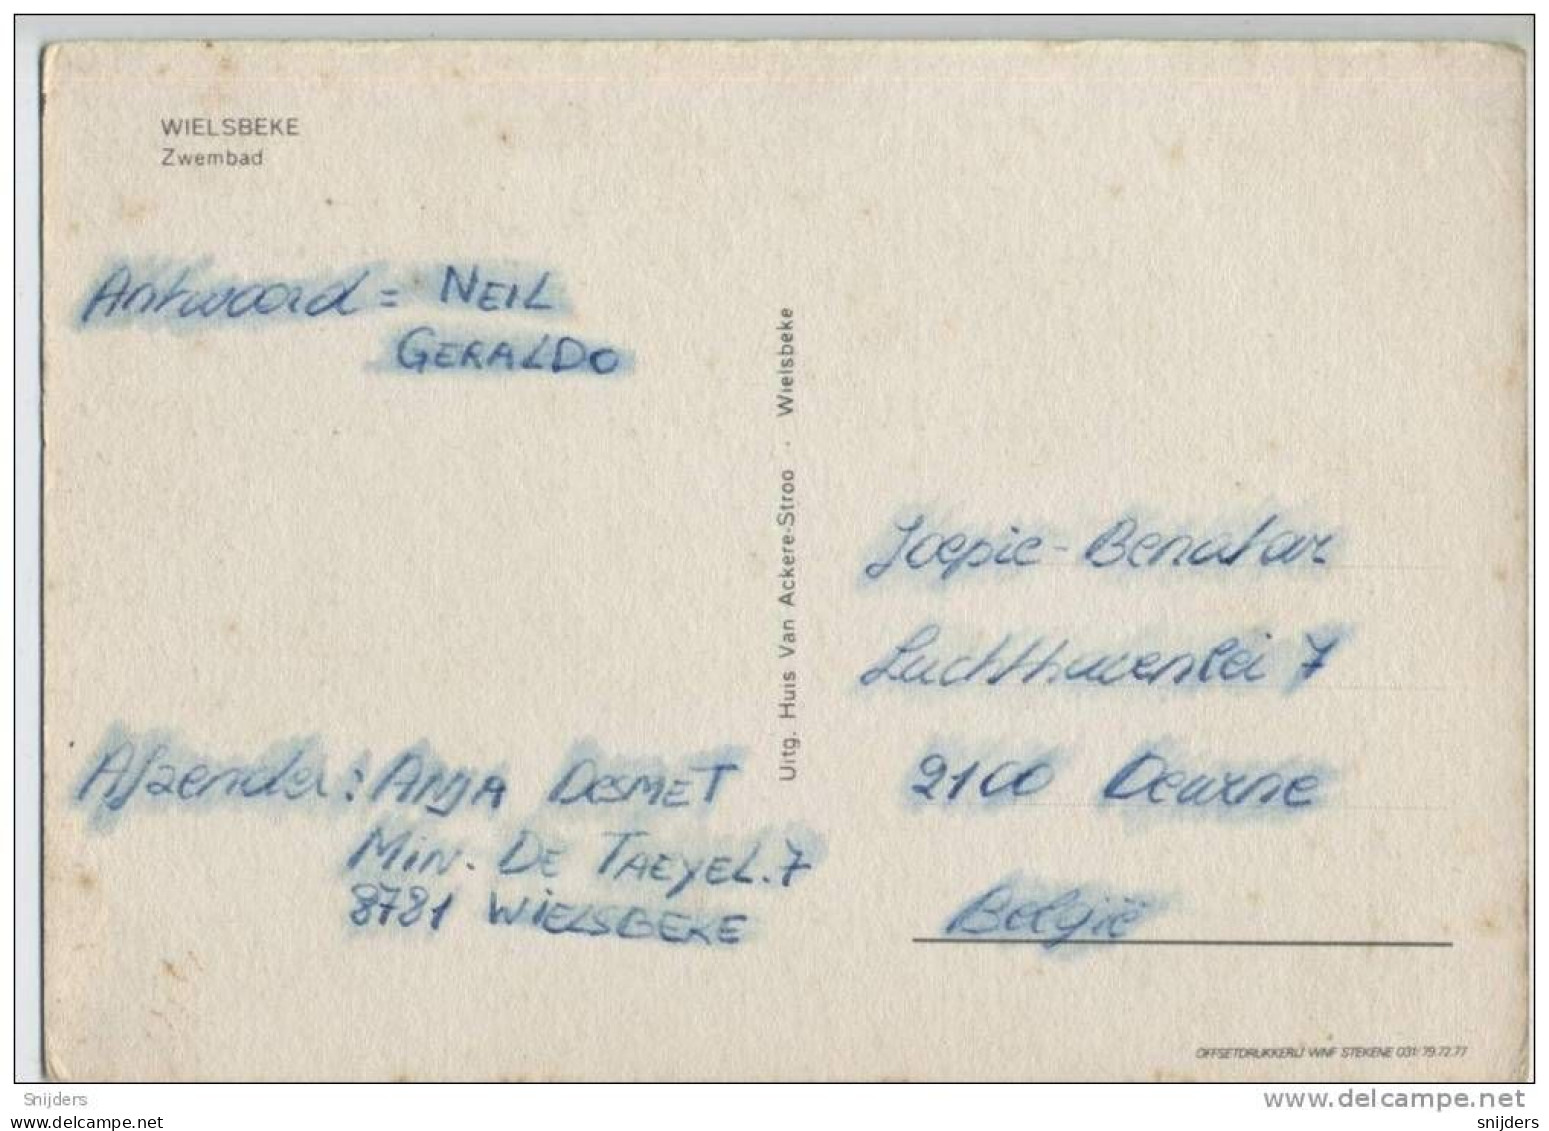 WIELSBEKE
Zwembad
Antwoord = NEIL
GERALDO
Afzender: ANJA DESMET
MIN. DE TAEYEL. 7
8781 WIELSBEKE
Uitg. Huis Van Ackere-Stroo · Wielsbeke
Joepie - Benatar
Luchthavenlei 7
2100 Deurne
België
OFFSETDRUKKERIJ WNF STEKENE 031/79.72.77
Snijders
www.delcampe.net
snijders